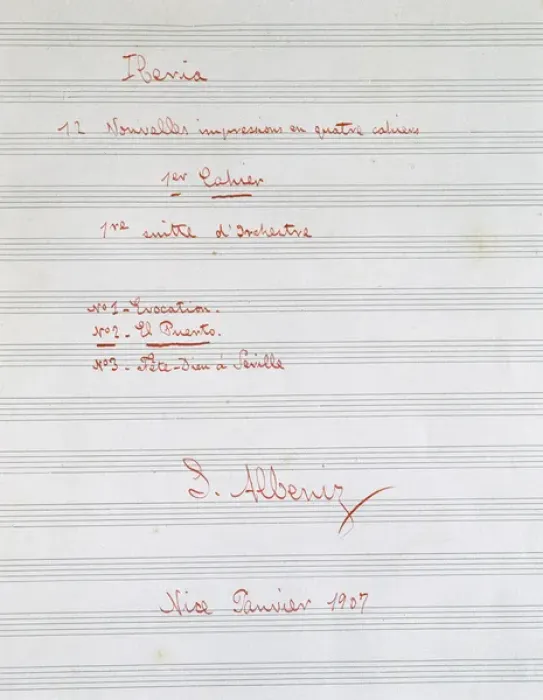 Iberia
12 Nouvelles impressions en quatre cahiers
1er Cahier
1re suitte d'Orchestre
Nº1 - Evocation.
Nº2 - El Puerto.
Nº3 - Fête-Dieu à Séville
I. Albeniz
Nice Janvier 1907